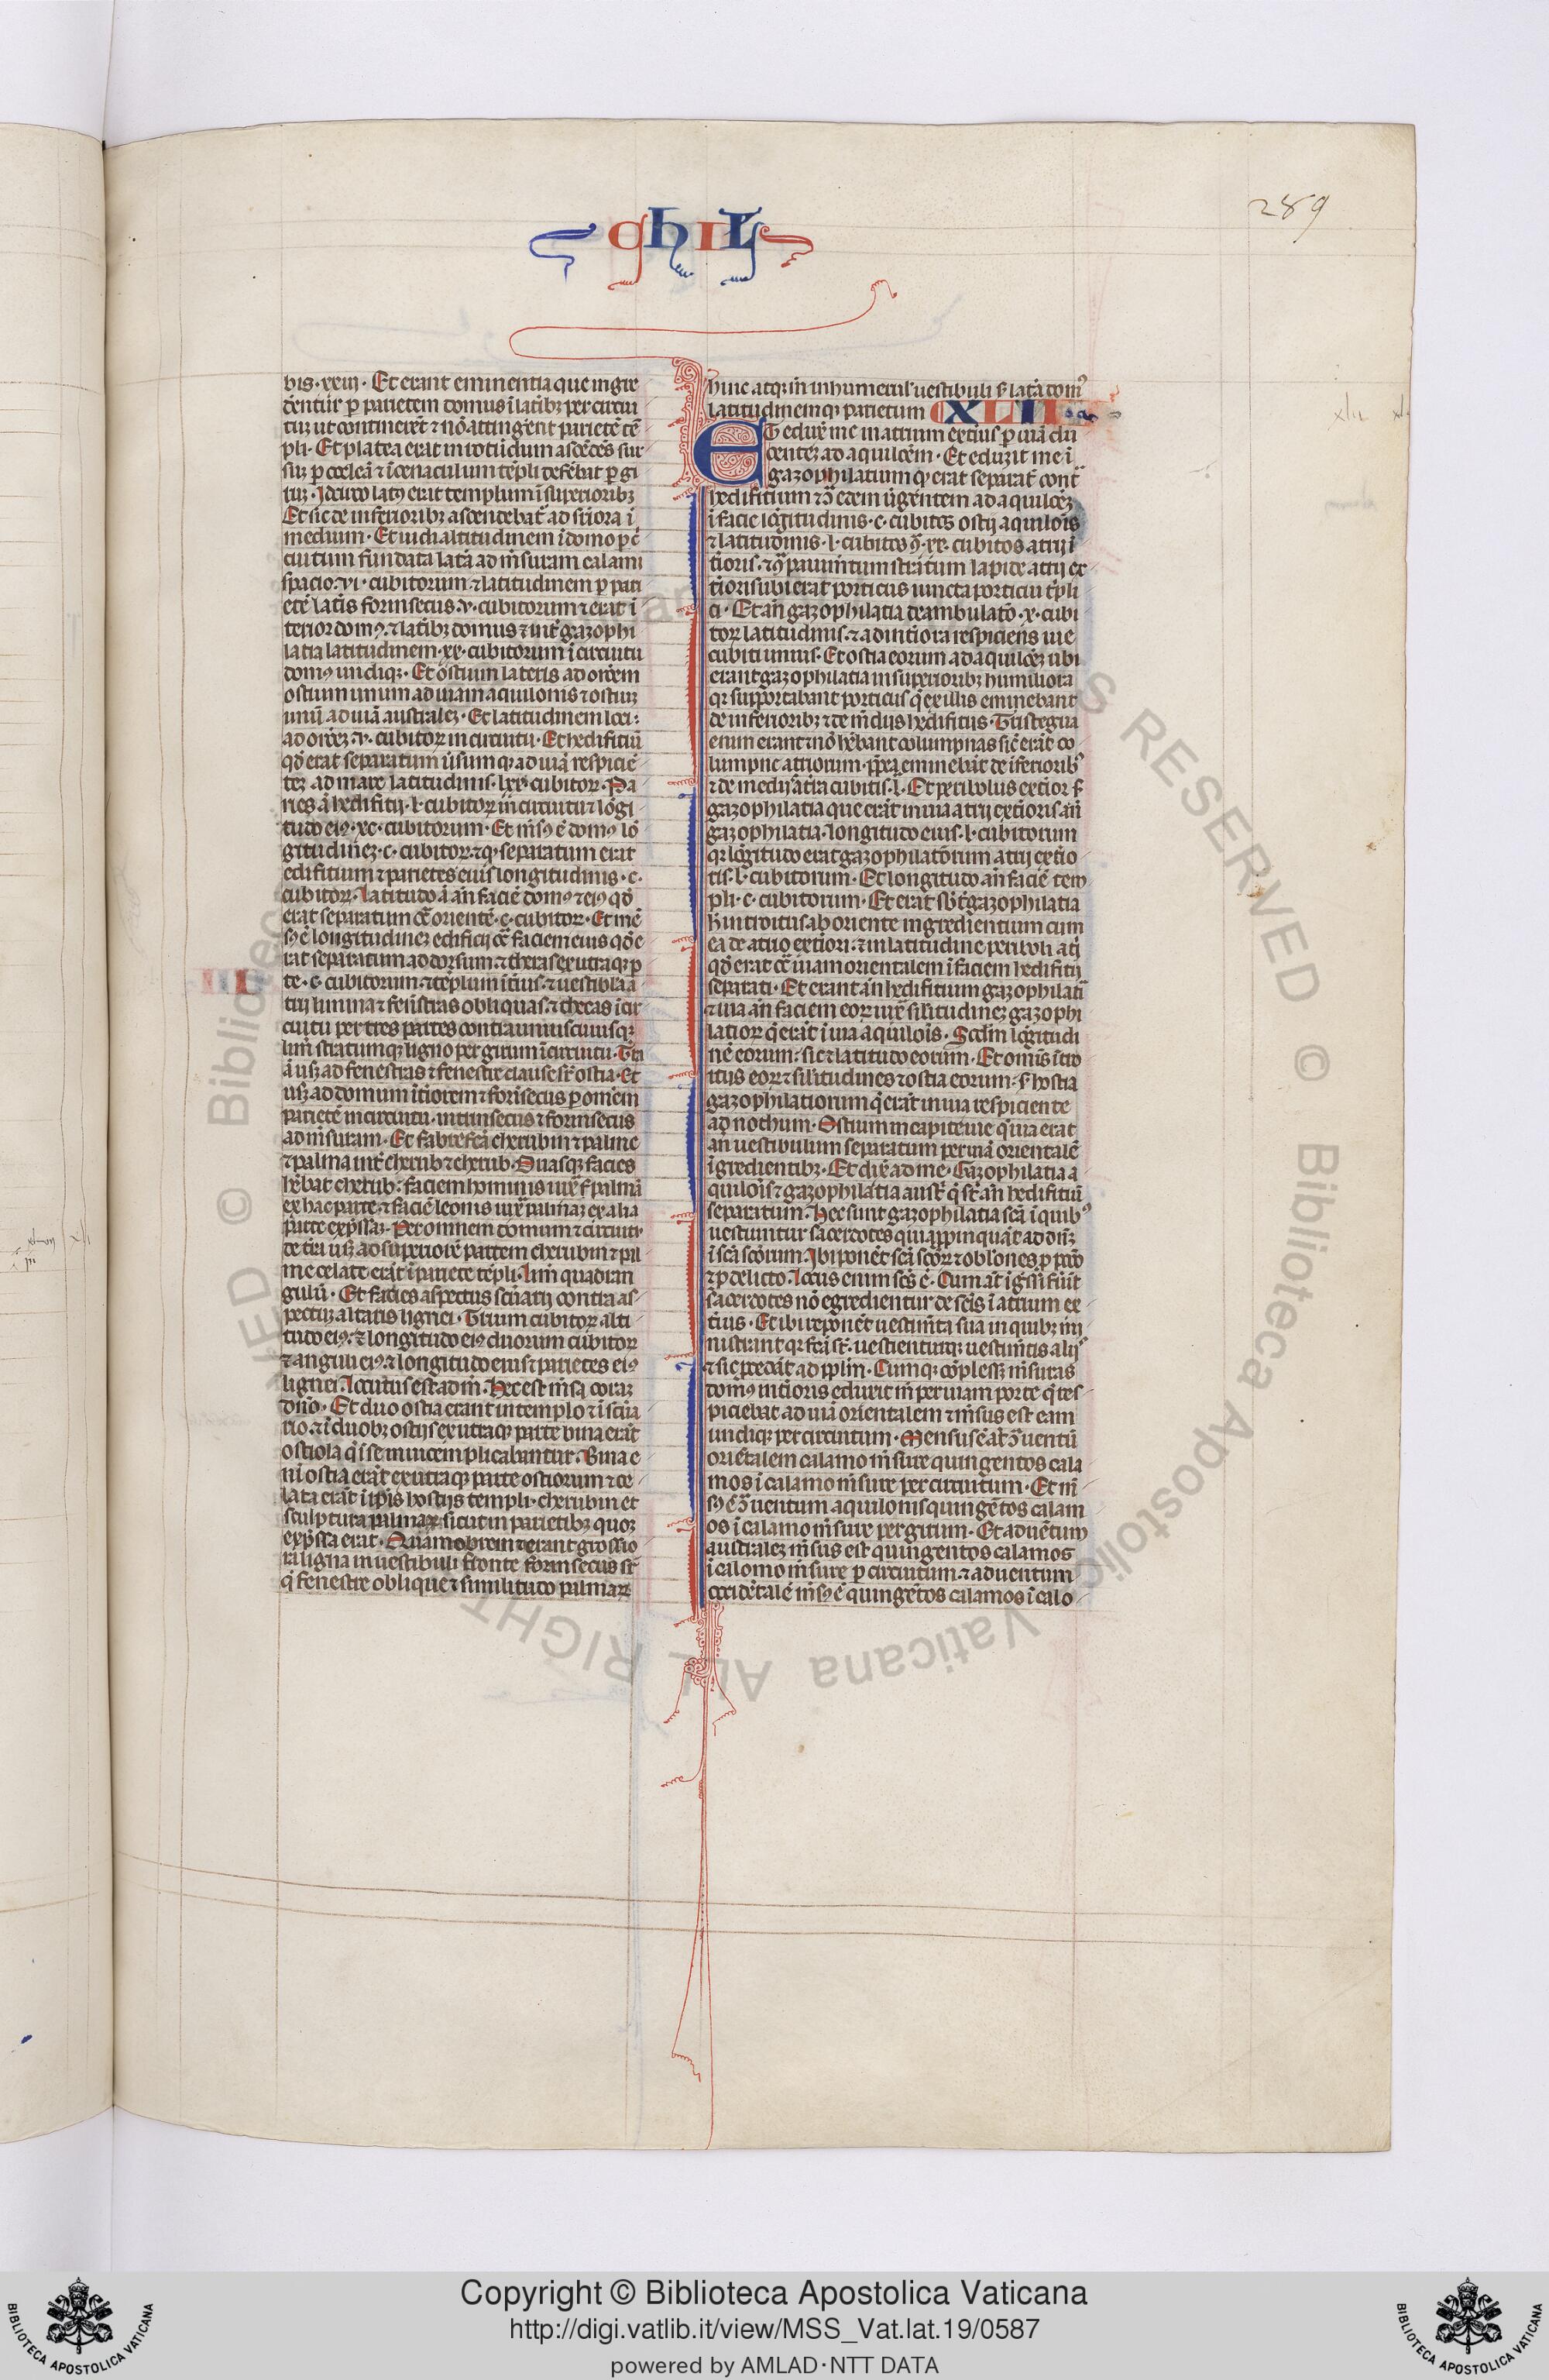 ghil
289
bis · xxiii · Et erant eminentia que ingre
derentur p parietem domus i laterib; per circui
tuz ut continerēt ⁊ nō attingerent parietē tē
pli · Et platea erat in rotūdum ascēdēs sur
suz p cocleā ⁊ i cenaculum tēpli deferebat p gi
ruz · Idcirco latiꝰ erat templum i superiorib;
Et sic de inferiorib; ascendebat᷑ ad suꝑiora i
medium · Et uidi altitudinem i domo p cir
cuitum fundata latera ad mensuram calami
spacio · vi · cubitorum ⁊ latitudinem p pari
etē lateris forinsecus · v · cubitorum ⁊ erat i
terior domꝰ · ⁊ laterib; domus ⁊ inter gazophi
latia latitudinem · xx · cubitorum i circuitu
domꝰ undiq; · Et ostium lateris ad orōem
ostium unum ad uiam aquilonis ⁊ ostiuz
unū ad uiā australez · Et latitudinem loci ·
ad orōez · v · cubitoꝝ in circuitu · Et hedificiū
qd erat separatum uersumq; ad uiā respiciē
tez ad mare latitudinis · lxx · cubitoꝝ · Pa
ries ā hedificij · v · cubitoꝝ in circuitu ⁊ lōgi
tudo eiꝰ · xc · cubitorum · Et mēsꝰ ē domꝰ lō
gitudinez · c · cubitoꝝ · ⁊ q separatum erat
edificium ⁊ parietes eius longitudinis · c ·
cubitoꝝ · latitudo ā an faciē domꝰ ⁊ eiꝰ qd
erat separatum cō orientē · c · cubitoꝝ · Et mē
sꝰ ē longitudinez edificij cō faciem eius qd e
rat separatum ad dorsum · ⁊ thecas ex utraq; p
te · c · cubitorum · ⁊ tēplum iterius · ⁊ uestibla a
trij limina ⁊ fenestras obliquas · ⁊ thecas i cir
cuitu per tres partes contra uniuscuiusq;
limen stratumq; ligno per girum i circuitu · Tera
ā usq; ad fenestras ⁊ fenestre clause sr ostia · Et
usq; ad domum iteriorem ⁊ forinsecus p omēm
parietē in circuitu · intrinsecus ⁊ forinsecus
ad mensuram · Et fabrefca cherubin ⁊ palme
⁊ palma inter cherub ⁊ cherub · Duasq; facies
hēbat cherub · faciem hominis iuxta palmā
ex hac parte · ⁊ faciē leonis iuxta palmaz ex alia
parte expressaz · Per omnem domum ⁊ circuitū
de terra usq; ad superiorē partem cherubin ⁊ pal
me celate erāt i pariete tēpli · Limen quadran
gulū · Et facies aspectus scuarij contra as
pectuz altaris lignei · Trium cubitoꝝ alti
tudo eiꝰ · ⁊ longitudo eiꝰ duorum cubitoꝝ
⁊ anguli eiꝰ · ⁊ longitudo eius ⁊ parietes eiꝰ
lignei · Locutus est ad me · Hec est mensa coraz
dno · Et duo ostia erant in templo ⁊ i scua
rio · ⁊ i duob; ostijs ex utraq; parte bina erāt
ostiola q i se inuicem plicabantur · Bina e
ni ostia erāt ex utraq; parte ostiorum ⁊ ce
lata erāt i ipis hostijs templi · cherubin et
sculptura palmaꝝ sicut in parietib; quoz
expressa erat · Quamobrem ⁊ erant grossio
ra ligna in uestibuli fronte forinsecus sr
q fenestre oblique ⁊ similitudo palmaꝝ
hinc atq; in in humerulis uestibuli scdm latera domꝰ
latitudinemq; parietum XLII
ET eduxit me in atrium exterius p uiā du
centez ad aquilōem · Et eduxit me i
gazophilatium q erat separat contra
hedificium ⁊ cō edem uergentem ad aquilōez
i facie lōgitudinis · c · cubitos ostij aquilois
⁊ latitudinis · l · cubitos cō · xx · cubitos atrij i
terioris · ⁊ cō pauimentum stratum lapide atrij ex
terioris ubi erat porticus iuncta porticui tripli
ci · Et an gazophilatia deambulatō · x · cubi
toꝝ latitudinis · ⁊ ad interiora respiciens uie
cubiti unius · Et ostia eorum ad aquilōez ubi
erant gazophilatia in superiorib; humiliora
qr supportabant porticus q ex illis eminebant
de inferiorib; ⁊ de medijs hedificijs · Tristega
enim erant ⁊ nō hēbant columpnas sic erāt co
lumpne atriorum · ppea eminebāt de iferiorib;
⁊ de medijs a terra cubitis · l · Et peribolus exterior scdm
gazophilatia que erāt in uia atrij exterioris an
gazophilatia · longitudo eius · l · cubitorum
qr lōgitudo erat gazophilatorum atrij exterio
ris · l · cubitorum · Et longitudo an faciē tem
pli · c · cubitorum · Et erat subter gazophilatia
h introitus ab oriente ingredientium cum
ea de atrio exteriori · ⁊ in latitudine periboli atrij
qd erat cō uiam orientalem i faciem hedificij
separati · Et erant an hedificium gazophilatia
⁊ uia an faciem eoꝝ iuxta silitudinez gazophi
latioꝝ q erāt i uia aquilois · Scdm lōgitudi
nē eorum · sic ⁊ latitudo eorum · Et omis itro
itus eoꝝ ⁊ silitudines ⁊ ostia eorum · scdm hostia
gazophilatiorum q erāt in uia respiciente
ad nothum · Ostium in capite uie q uia erat
an uestibulum separatum per uiā orientalē
igredientib; · Et dixit ad me · Gazophilatia a
quilois ⁊ gazophilatia austri q sr an hedificiū
separatum · Hec sunt gazophilatia sca i quibꝰ
uestiuntur sacerdotes qui appinquāt ad dnz
i sca scorum · Ibi ponēt sca scoꝝ ⁊ oblōnes p pcco
⁊ p delicto · Locus enim scs ē · Cum at igssi fuerint
sacerdotes nō egredientur de scis i atrium ex
terius · Et ibi reponēt uestimēta sua in quib; mi
nistrant qr sca sr · uestienturq; uestimētis alijs
⁊ sic pcedāt ad pplm · Cumq; cōplessz mensuras
domꝰ interioris eduxit me per uiam porte q res
piciebat ad uiā orientalem ⁊ mensus est eam
undiq; per circuitum · Mensus ē āt cō uentū
oriētalem calamo mensure quingentos cala
mos i calamo mensure per circuitum · Et mē
sꝰ ē cō uentum aquilonis quingētos calam
os i calamo mensure per girum · Et ad uētum
australez mensus est quingentos calamos
i calomo mensure p circuitum · ⁊ ad uentum
occidētalē mēsꝰ ē quingētos calamos i calo
Copyright © Biblioteca Apostolica Vaticana
http://digi.vatlib.it/view/MSS_Vat.lat.19/0587
powered by AMLAD·NTT DATA
BIBLIOTECA APOSTOLICA VATICANA
BIBLIOTECA APOSTOLICA VATICANA
© Biblioteca Apostolica Vaticana ALL RIGHTS RESERVED